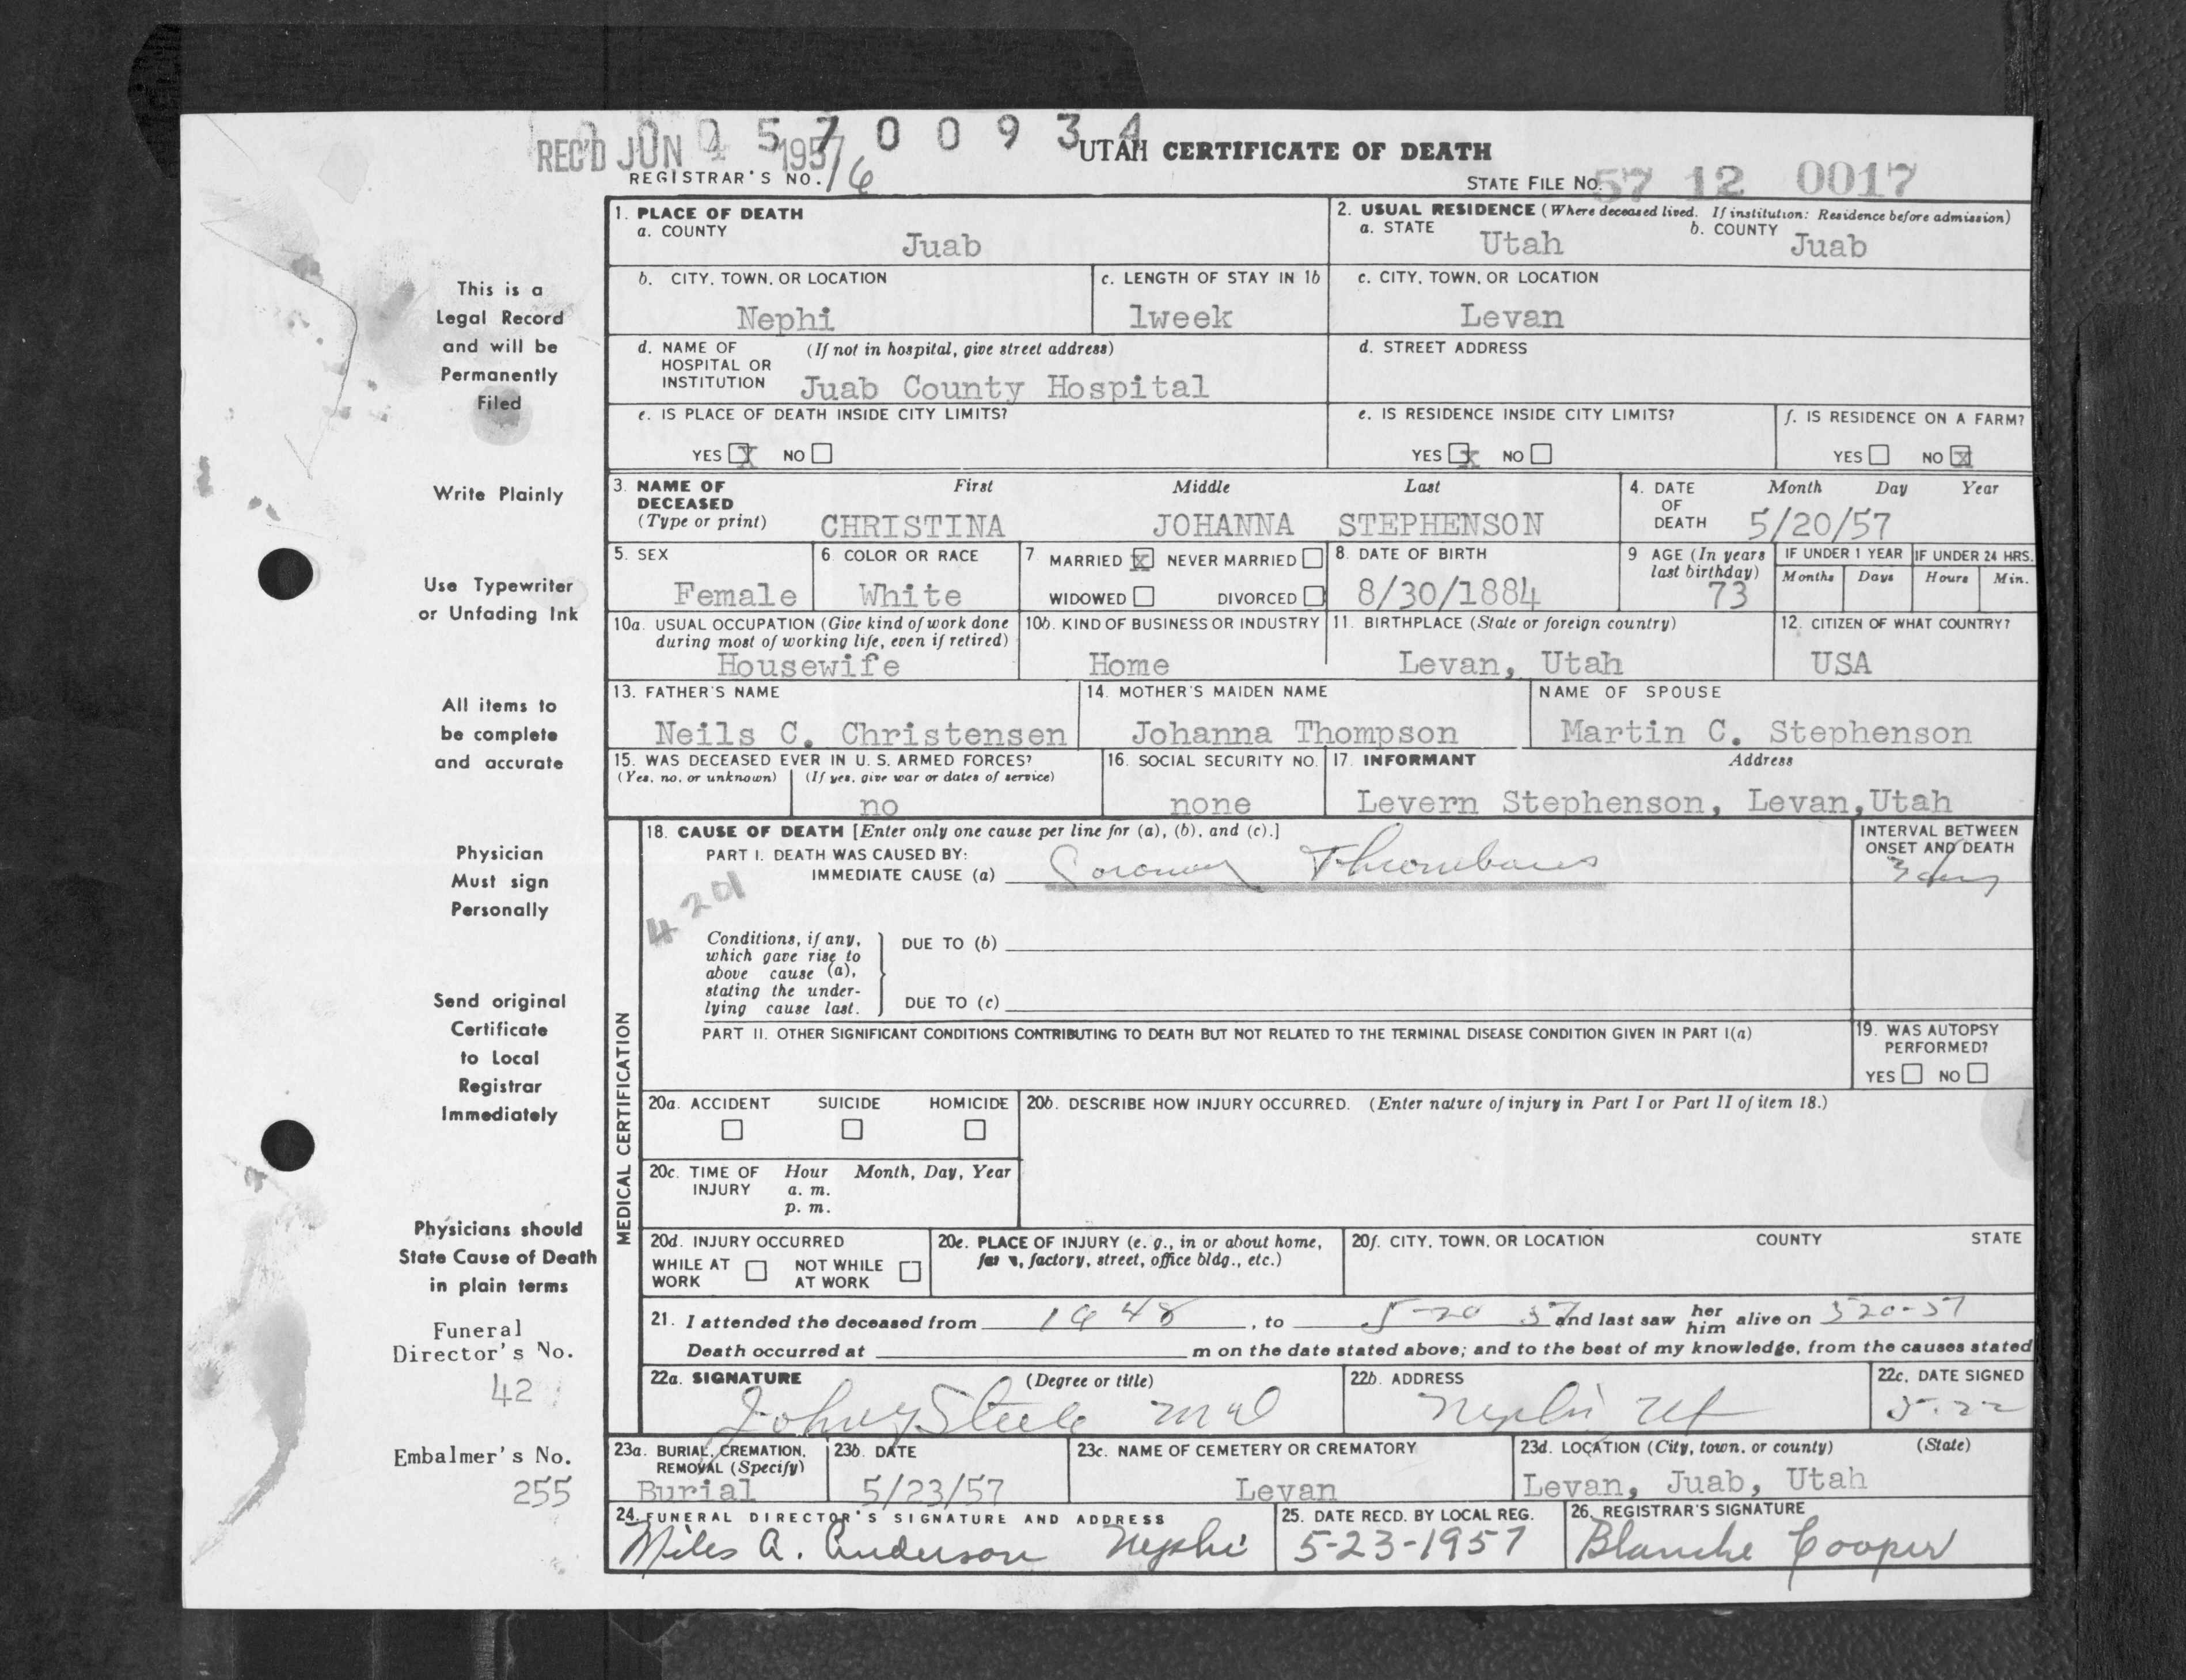 REC'D JUN 4 1957
5 7 0 0 9 3 4
UTAH CERTIFICATE OF DEATH
REGISTRAR'S NO. 16
STATE FILE NO. 57 12 0017
1. PLACE OF DEATH
a. COUNTY
Juab
2. USUAL RESIDENCE (Where deceased lived. If institution: Residence before admission)
a. STATE Utah b. COUNTY Juab
b. CITY, TOWN, OR LOCATION
Nephi
c. LENGTH OF STAY IN 1b
1week
c. CITY, TOWN, OR LOCATION
Levan
d. NAME OF (If not in hospital, give street address)
HOSPITAL OR
INSTITUTION Juab County Hospital
d. STREET ADDRESS
e. IS PLACE OF DEATH INSIDE CITY LIMITS?
YES X NO
e. IS RESIDENCE INSIDE CITY LIMITS?
YES X NO
f. IS RESIDENCE ON A FARM?
YES NO X
3. NAME OF DECEASED (Type or print)
First Middle Last
CHRISTINA JOHANNA STEPHENSON
4. DATE OF DEATH
Month Day Year
5/20/57
5. SEX
Female
6. COLOR OR RACE
White
7. MARRIED X NEVER MARRIED
WIDOWED DIVORCED
8. DATE OF BIRTH
8/30/1884
9 AGE (In years last birthday)
73
IF UNDER 1 YEAR
Months Days
IF UNDER 24 HRS.
Hours Min.
10a. USUAL OCCUPATION (Give kind of work done
during most of working life, even if retired)
Housewife
10b. KIND OF BUSINESS OR INDUSTRY
Home
11. BIRTHPLACE (State or foreign country)
Levan, Utah
12. CITIZEN OF WHAT COUNTRY?
USA
13. FATHER'S NAME
Neils C. Christensen
14. MOTHER'S MAIDEN NAME
Johanna Thompson
NAME OF SPOUSE
Martin C. Stephenson
15. WAS DECEASED EVER IN U. S. ARMED FORCES?
(Yes, no, or unknown) (If yes, give war or dates of service)
no
16. SOCIAL SECURITY NO.
none
17. INFORMANT Address
Levern Stephenson, Levan,Utah
MEDICAL CERTIFICATION
18. CAUSE OF DEATH [Enter only one cause per line for (a), (b), and (c).]
PART I. DEATH WAS CAUSED BY:
IMMEDIATE CAUSE (a) Coronary Thrombosis
INTERVAL BETWEEN
ONSET AND DEATH
3 days
4201
Conditions, if any,
which gave rise to
above cause (a),
stating the under-
lying cause last.
DUE TO (b)
DUE TO (c)
PART II. OTHER SIGNIFICANT CONDITIONS CONTRIBUTING TO DEATH BUT NOT RELATED TO THE TERMINAL DISEASE CONDITION GIVEN IN PART I(a)
19. WAS AUTOPSY
PERFORMED?
YES NO
20a. ACCIDENT SUICIDE HOMICIDE
20b. DESCRIBE HOW INJURY OCCURRED. (Enter nature of injury in Part I or Part II of item 18.)
20c. TIME OF INJURY
Hour Month, Day, Year
a. m.
p. m.
20d. INJURY OCCURRED
WHILE AT WORK NOT WHILE AT WORK
20e. PLACE OF INJURY (e. g., in or about home,
farm, factory, street, office bldg., etc.)
20f. CITY, TOWN, OR LOCATION COUNTY STATE
21. I attended the deceased from 1948, to 5-20 57 and last saw her him alive on 5 20-57
Death occurred at m on the date stated above; and to the best of my knowledge, from the causes stated
22a. SIGNATURE (Degree or title)
John G Steele MD
22b. ADDRESS
Nephi Ut
22c. DATE SIGNED
5-22
23a. BURIAL, CREMATION,
REMOVAL (Specify)
Burial
23b. DATE
5/23/57
23c. NAME OF CEMETERY OR CREMATORY
Levan
23d. LOCATION (City, town, or county) (State)
Levan, Juab, Utah
24. FUNERAL DIRECTOR'S SIGNATURE AND ADDRESS
Miles A. Anderson Nephi
25. DATE RECD. BY LOCAL REG.
5-23-1957
26. REGISTRAR'S SIGNATURE
Blanche Cooper
This is a
Legal Record
and will be
Permanently
Filed
Write Plainly
Use Typewriter
or Unfading Ink
All items to
be complete
and accurate
Physician
Must sign
Personally
Send original
Certificate
to Local
Registrar
Immediately
Physicians should
State Cause of Death
in plain terms
Funeral
Director's No.
42
Embalmer's No.
255